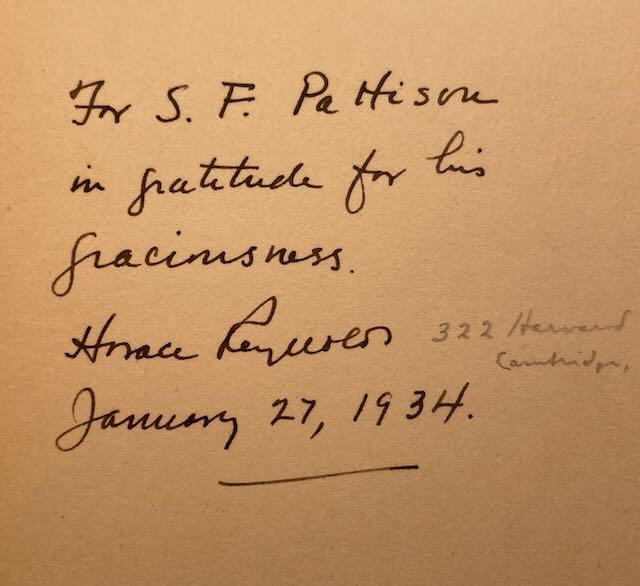 For S. F. Pattison
in gratitude for his
graciousness.
Horace Reynolds
322 Harvard
Cambridge,
January 27, 1934.